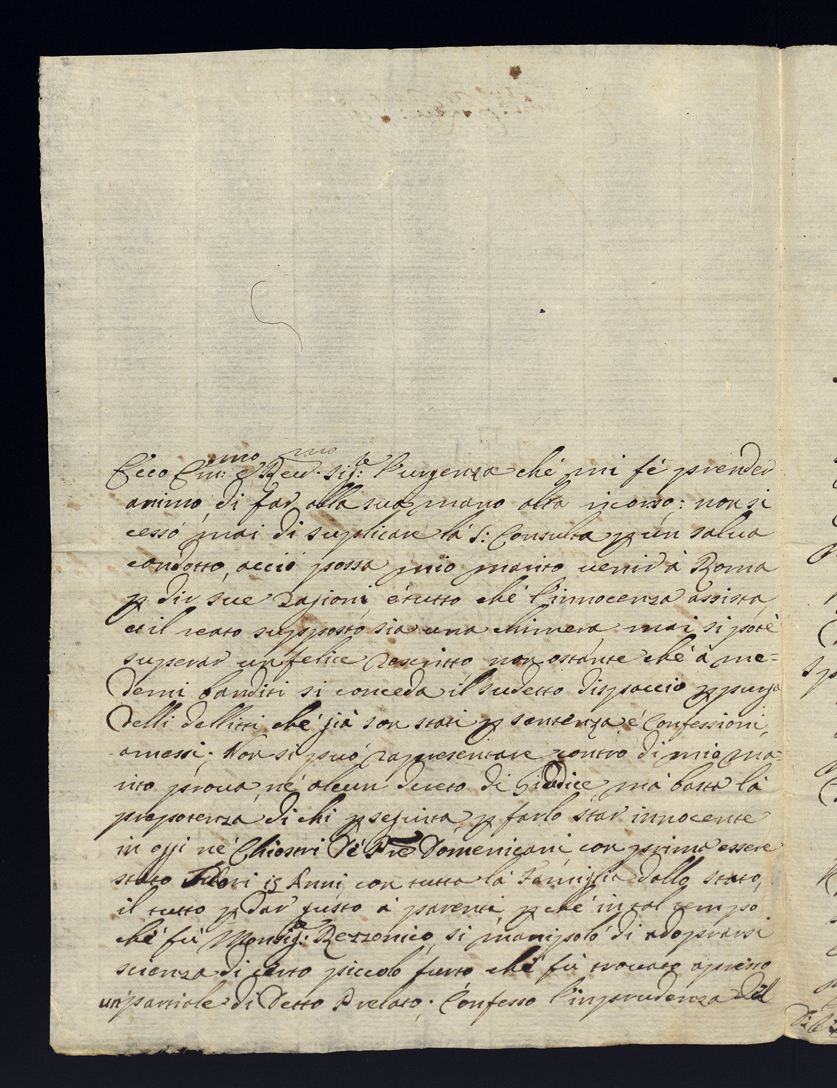 Ecco Em:mo e Rev:mo Sig:re l'urgenza ché mi fé prender
animo di far alla sua mano alta ricorso: non si
cessó mai di suplicare la S: Consulta p un salva
condotto, acció possa mio marito venir à Roma
p dir sue ragioni é tutto ché l'innocenza assista
et il reato supposto sia una chimera mai si poté
superar un felice rescritto non ostante ché à me=
demi banditi si conceda il sudetto dispaccio p purga
delli dellitti ché già son stati p sentenza é Confessioni
amessi. Non si puó rapresentare contro di mio ma=
rito prova, né alcun decreto di Giudice má basta la
prepotenza di chi pseguita p farlo star innocente
in oggi né Chiostri de Pre Domenicani con prima essere
stato fuori 15 Anni con tutta la Famiglia dallo stato,
il tutto p dar gusto à parenti p ché in tal tempo
ché fú Monsig:re Rezzonico, si manipoló di adoprarsi
scienza di certo piccolo furto ché fú trovato apresso
un parziale di detto Prelato. Confesso l'imprudenza del